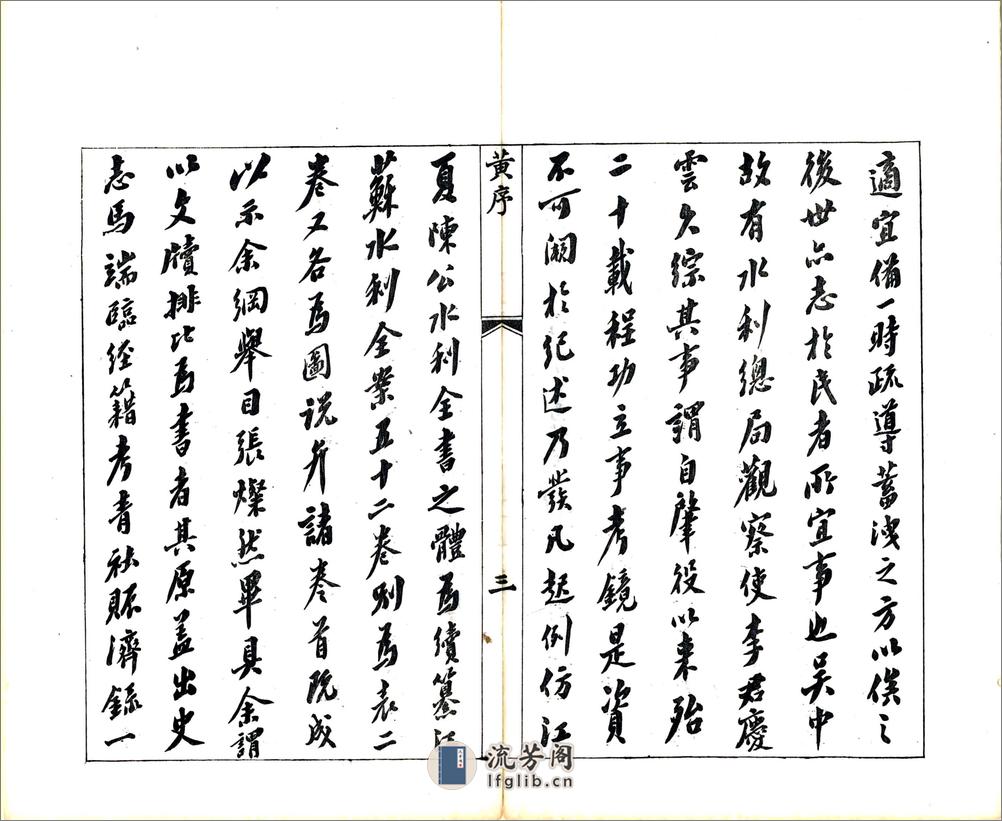 適宜備一時疏導蓄洩之方以俟之
後世亦志於民者所宜事也吴中
故有水利總局觀察使李君慶
雲久綜其事謂自肇役以來殆
二十載程功立事考鏡是資
不可闕於紀述乃發凡起例仿江
黃序
三
夏陳公水利全書之體為續纂江
蘇水利全案五十二卷別為表二
卷又各為圖說弁諸卷首既成
以示余綱舉目張燦然畢具余謂
以文牘排比為書者其原蓋出史
志馬端臨經籍考青社賑濟錄一
流芳阁
lfglib.cn